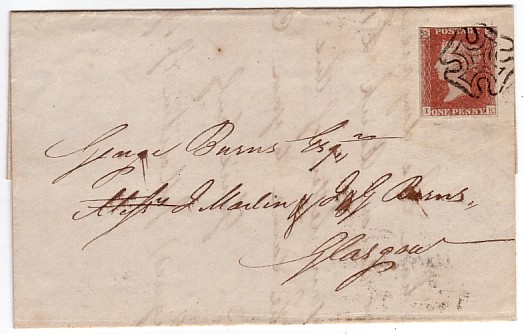 POSTAGE
ONE PENNY
George Burns Esqr
Messrs J Martin & J & G Burns,
Glasgow